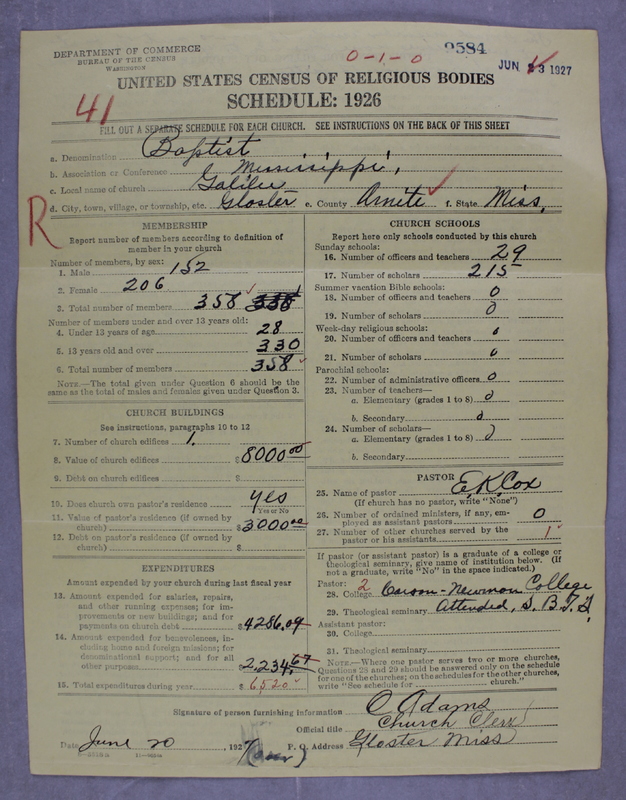 DEPARTMENT OF COMMERCE
BUREAU OF THE CENSUS
WASHINGTON
0-1-0
9584
JUN 23 1927
UNITED STATES CENSUS OF RELIGIOUS BODIES
SCHEDULE: 1926
41
FILL OUT A SEPARATE SCHEDULE FOR EACH CHURCH. SEE INSTRUCTIONS ON THE BACK OF THIS SHEET
a. Denomination Baptist
b. Association or Conference Mississippi,
c. Local name of church Galilee
d. City, town, village, or township, etc. Gloster e. County Amite f. State Miss,
R
MEMBERSHIP
Report number of members according to definition of member in your church
Number of members, by sex:
1. Male 152
2. Female 206
3. Total number of members 358 338
Number of members under and over 13 years old:
4. Under 13 years of age 28
5. 13 years old and over 330
6. Total number of members 358
NOTE.—The total given under Question 6 should be the same as the total of males and females given under Question 3.
CHURCH BUILDINGS
See instructions, paragraphs 10 to 12
7. Number of church edifices 1.
8. Value of church edifices $8000 00
9. Debt on church edifices $
10. Does church own pastor's residence yes
Yes or No
11. Value of pastor's residence (if owned by church) $3000 00
12. Debt on pastor's residence (if owned by church) $
EXPENDITURES
Amount expended by your church during last fiscal year
13. Amount expended for salaries, repairs, and other running expenses; for improvements or new buildings; and for payments on church debt $4286.04
14. Amount expended for benevolences, including home and foreign missions; for denominational support; and for all other purposes 2,234.67
15. Total expenditures during year $ 6520
CHURCH SCHOOLS
Report here only schools conducted by this church
Sunday schools:
16. Number of officers and teachers 29
17. Number of scholars 215
Summer vacation Bible schools:
18. Number of officers and teachers 0
19. Number of scholars 0
Week-day religious schools:
20. Number of officers and teachers 0
21. Number of scholars 0
Parochial schools:
22. Number of administrative officers 0
23. Number of teachers—
a. Elementary (grades 1 to 8) 0
b. Secondary 0
24. Number of scholars—
a. Elementary (grades 1 to 8) 0
b. Secondary
PASTOR
25. Name of pastor E. K. Cox
(If church has no pastor, write "None")
26. Number of ordained ministers, if any, employed as assistant pastors 0
27. Number of other churches served by the pastor or his assistants 1
If pastor (or assistant pastor) is a graduate of a college or theological seminary, give name of institution below. (If not a graduate, write "No" in the space indicated.)
Pastor: 2
28. College Carson-Newman College
29. Theological seminary Attended, S. B. T. S.
Assistant pastor:
30. College
31. Theological seminary
NOTE.—Where one pastor serves two or more churches, Questions 28 and 29 should be answered only on the schedule for one of the churches; on the schedules for the other churches, write "See schedule for church."
Signature of person furnishing information O Adams
Official title Church Clerk
Date June 20, 1927 P. O. Address Gloster Miss
(over)